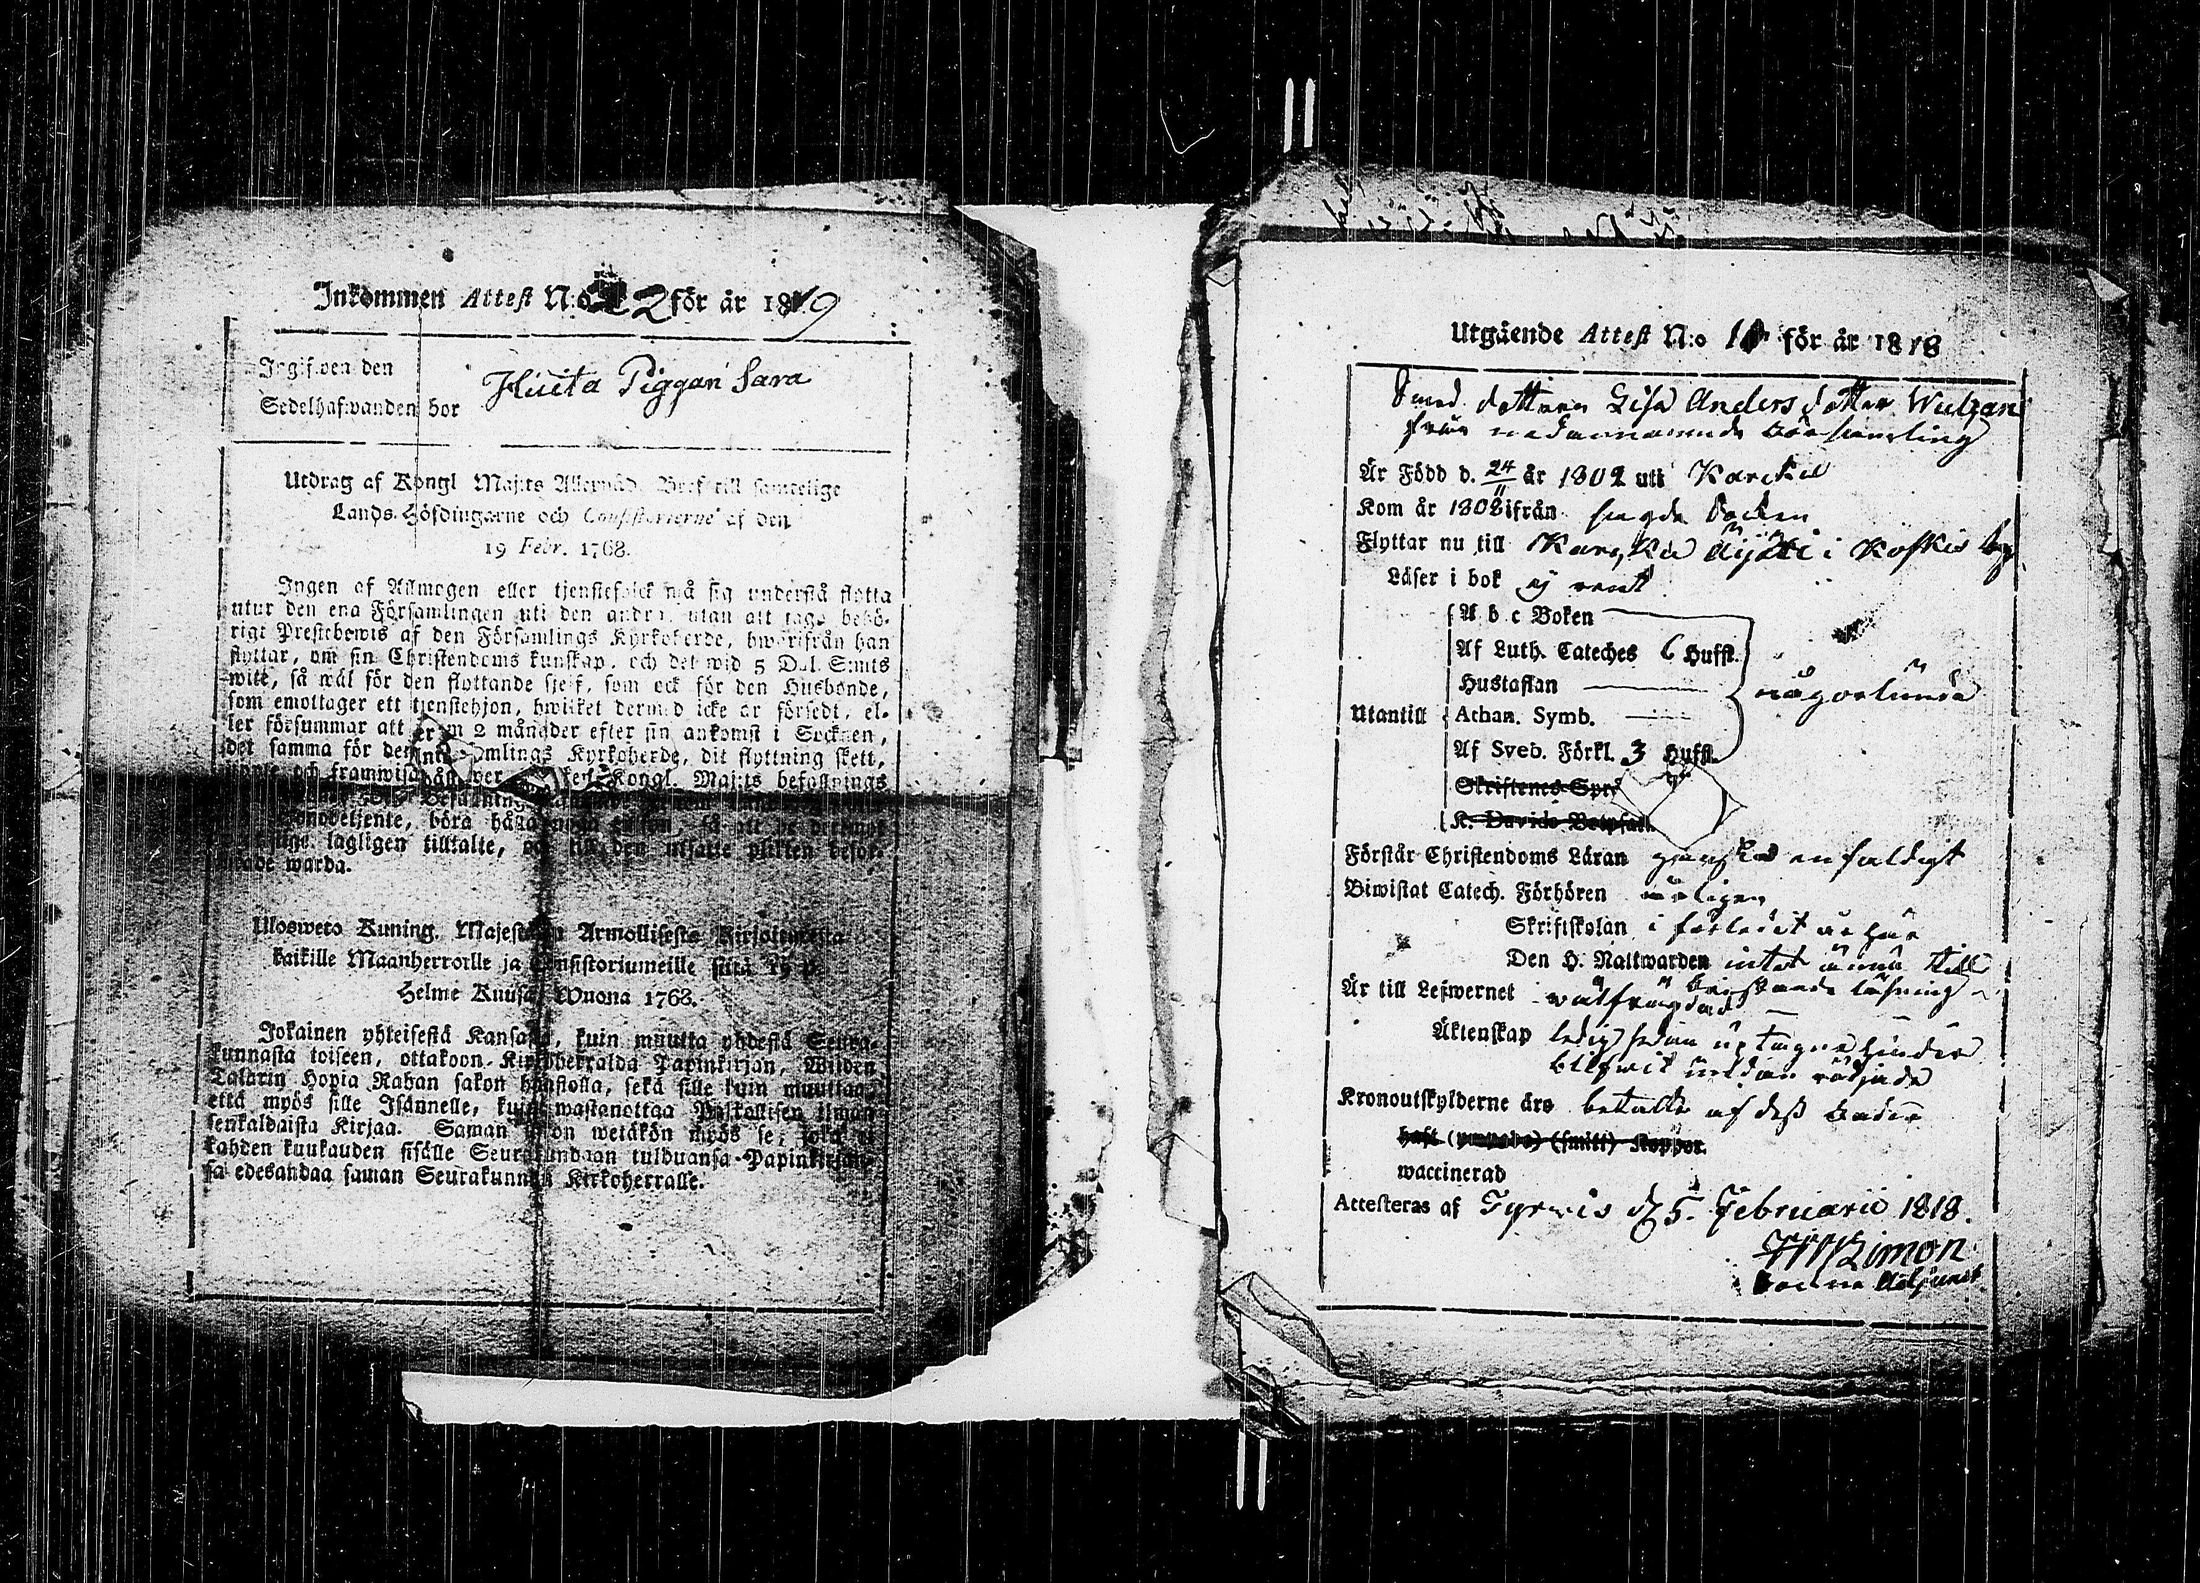 Inkommen Attest N:o 2 för år 1819
Ingifwen den
Sedelhafwanden bor Hiieta Piggan Sara
Utdrag af Kongl Maj:ts Allernåd. Bref till samtelige
Lands-Höfdingarne och Consistorierne af den
19 Febr. 1768.
Ingen af Allmogen eller tjenstefolck må sig understå flytta
utur den ena Församlingen uti den andra, utan att taga behö-
rigt Prestebewis af den Församlings Kyrkoherde, hwarifrån han
flyttar, om sin Christendoms kunskap, och det wid 5 Dal. S:mts
wite, så wäl för den flyttande sjelf, som ock för den Husbonde,
som emottager ett tjenstehjon, hwilket dermed icke är försedt, el-
ler försummar att inom 2 månader efter sin ankomst i Socknen,
det samma för den Församlings Kyrkoherde, dit flyttning skett,
och framwisa Kongl. Maj:ts befallnings
böra hålla
lagligen tilltalte, och till den utsatte plikten befor-
drade warda.
Ulosweto Kuning. Majestetin Armollisesta Kirjoituxesta
kaikille Maanherroille ja Consistoriumeille siitä 19 p.
Helme Kuusa Wuona 1768.
Jokainen yhteisestä Kansasta, kuin muutta yhdestä Seura-
kunnasta toiseen, ottakoon Kirkoherralda Papinkirjan, Wijden
Talarin Hopia Rahan sakon haastolla, sekä sille kuin muuttaa,
että myös sille Isännelle, kuin wastanottaa Palkollisen ilman
senkaldaista Kirjaa. Saman sakon wetäkön myös se, joka ei
kahden kuukauden sisälle Seurakundaan tulduansa Papinkirjan-
sa edesandaa saman Seurakunnan Kirkoherralle.
Utgående Attest N:o 10 för år 1818
Smed dottren Lisa Anders dotter Wulzan
från nedannämnde Församling
Är Född d. 24/11 år 1802 uti Karckil
Kom år 1808 ifrån sagde Socken
Flyttar nu till Karcku Äijälä i Koskis by
Läser i bok ej rent
A b c Boken
Af Luth. Cateches 6 Hufst.
Hustaflan
någorlunda
Utantill Athan. Symb.
Af Sveb. Förkl. 3 Hufst.
Skriftenes Spr
K. Davids Botpsal.
Förstår Christendoms Läran ganska enfaldigt
Biwistat Catech. Förhören årligen
Skriftskolan i förledit år här
Den H. Nattwarden intet ännu till
Är till Lefwernet wälfrägdad bristande läsning
Äktenskap ledig sedan uptagne hinder
blifwit undan rödjade
Kronoutskylderne äro betalte af dess fader
haft (ympade) (smitt) Koppor.
waccinerad
Attesteras af Tyrwis d. 5. Februarii 1818.
Simon
Adjunct